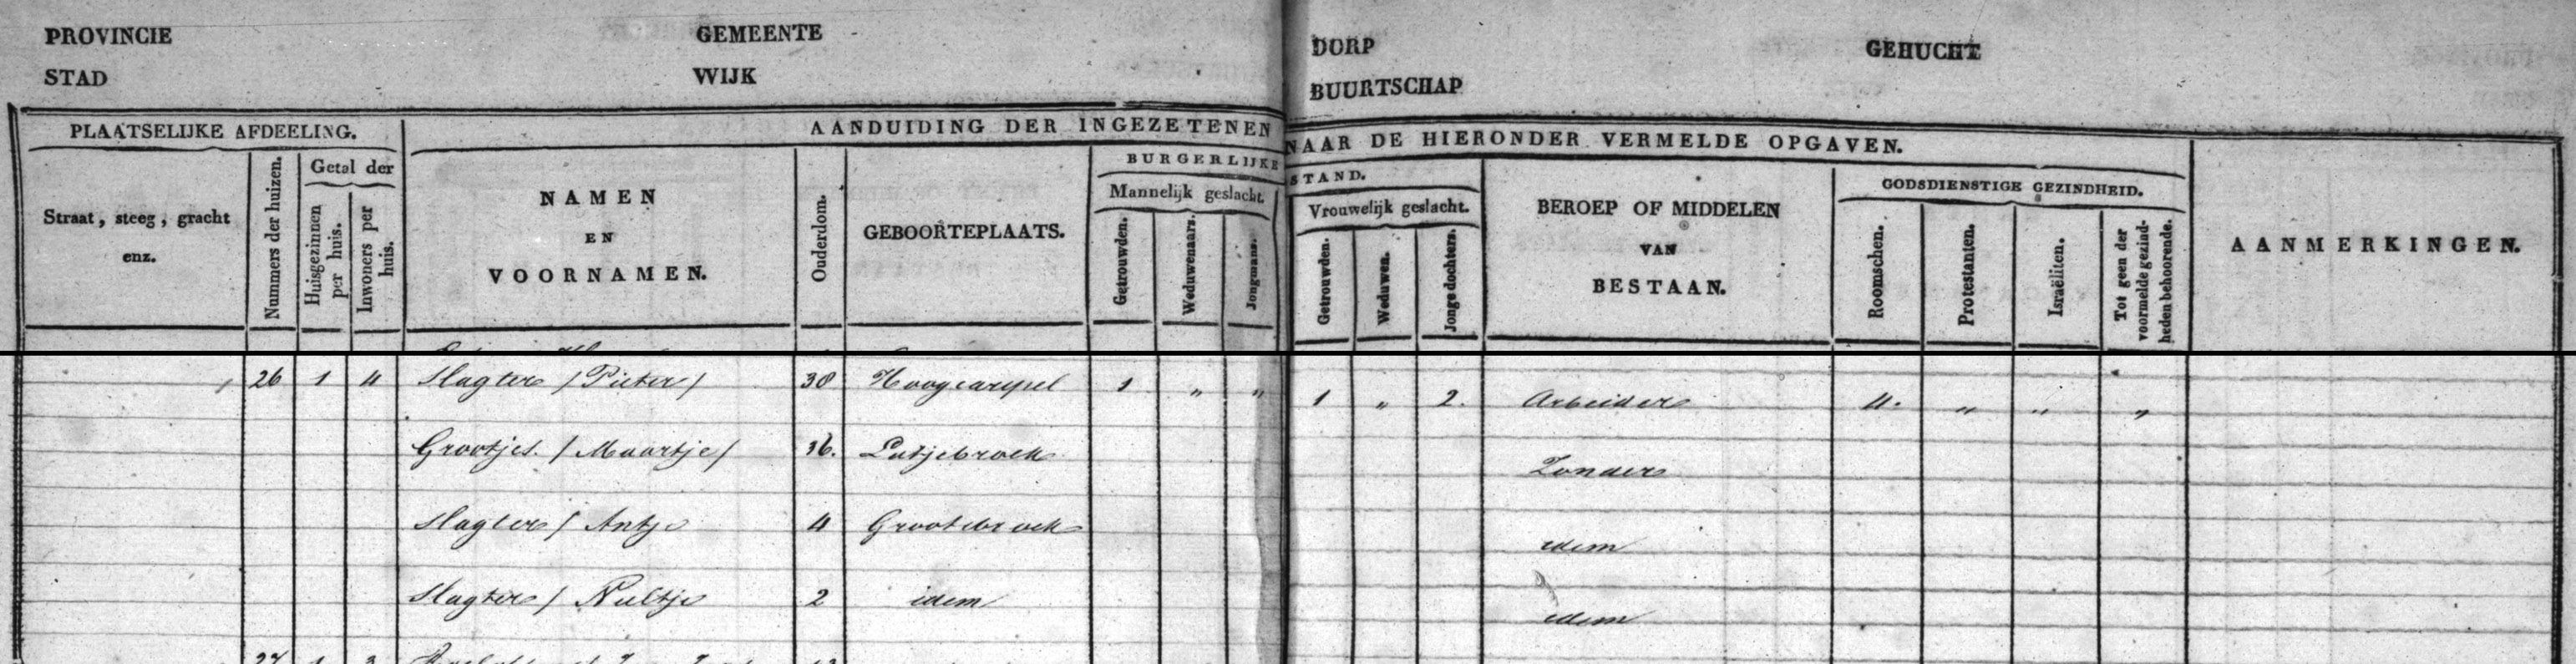 PROVINCIE GEMEENTE DORP GEHUCHT
STAD WIJK BUURTSCHAP
PLAATSELIJKE AFDEELING. AANDUIDING DER INGEZETENEN NAAR DE HIERONDER VERMELDE OPGAVEN.
Straat, steeg, gracht
enz.
Nummers der huizen.
Getal der
Huisgezinnen
per huis.
Inwoners per
huis.
NAMEN
EN
VOORNAMEN.
Ouderdom.
GEBOORTEPLAATS.
BURGERLIJKE STAND.
Mannelijk geslacht.
Getrouwden.
Weduwenaars.
Jongmans.
Vrouwelijk geslacht.
Getrouwden.
Weduwen.
Jonge dochters.
BEROEP OF MIDDELEN
VAN
BESTAAN.
GODSDIENSTIGE GEZINDHEID.
Roomschen.
Protestanten.
Israëliten.
Tot geen der
voormelde gezind-
heden behoorende.
AANMERKINGEN.
26 1 4 Slagter / Pieter / 38 Hoogcarspel 1 " " 1 " 2. Arbeider 4. " " "
Grootjes. / Maartje / 36. Lutjebroek Zonder
Slagter / Antje 4 Grootebroek idem
Slagter / Neeltje 2 idem idem
27 1 3